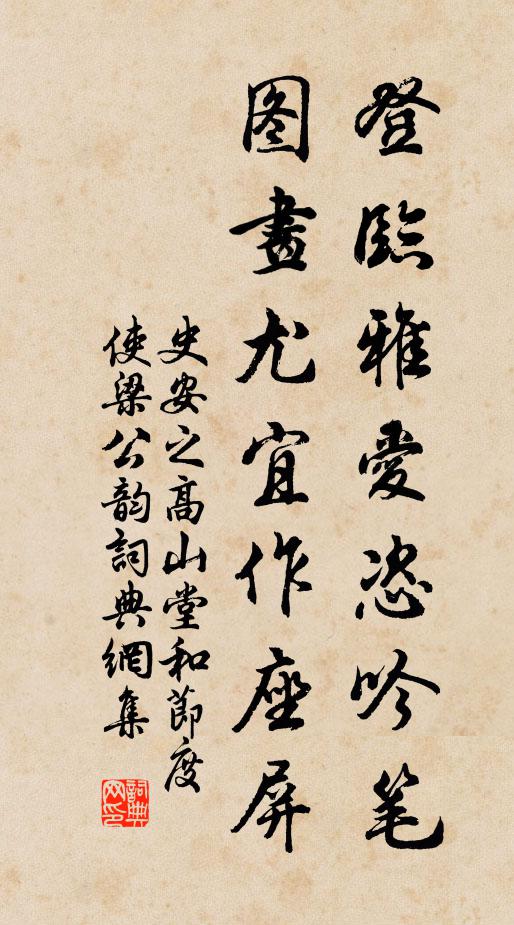 登臨雅愛恣吟笔
图畫尤宜作座屏
史安之高山堂和節度
使梁公韵詞典網集
詞典网印